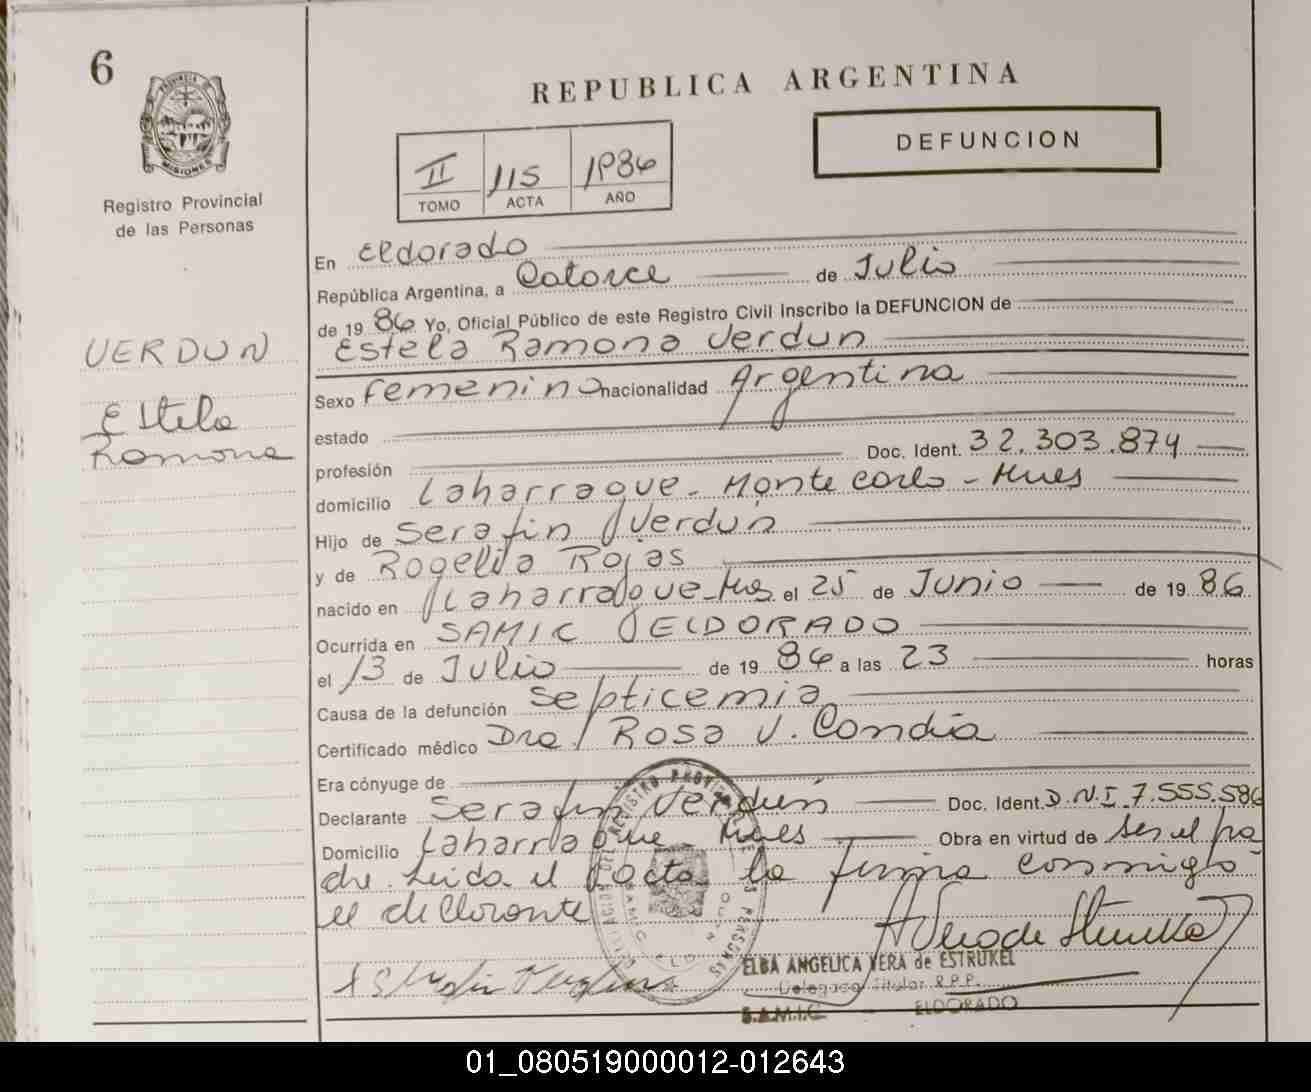 6
REPUBLICA ARGENTINA
PROVINCIA DE
MISIONES
Registro Provincial
de las Personas
DEFUNCION
II 115 1986
TOMO ACTA AÑO
VERDUN
Estela
Ramona
En Eldorado
República Argentina, a Catorce de Julio
de 19 86 Yo, Oficial Público de este Registro Civil Inscribo la DEFUNCION de
Estela Ramona Verdun
Sexo Femenino nacionalidad Argentina
estado
profesión Doc. Ident. 32.303.874
domicilio Laharrague - Monte Carlo - Mnes
Hijo de Serafin Verdún
y de Rogelia Rojas
nacido en Laharrague - Mns el 25 de Junio de 19 86
Ocurrida en SAMIC ELDORADO
el 13 de Julio de 19 86 a las 23 horas
Causa de la defunción septicemia
Certificado médico Dra Rosa V. Condia
Era cónyuge de
Declarante Serafin Verdún Doc. Ident. D.N.I 7.555.586
Domicilio Laharrague - Mnes Obra en virtud de ser el pa
dre. Leida el Acta la firma conmigo
el declarante
ELBA ANGELICA VERA de ESTRUKEL
Delegada Titular R.P.P.
S.A.M.I.C. ELDORADO
01_080519000012-012643